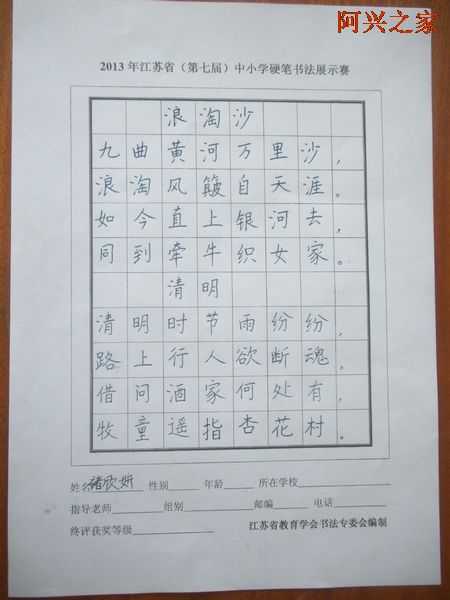 阿兴之家
2013年江苏省（第七届）中小学硬笔书法展示赛
浪淘沙
九曲黄河万里沙，
浪淘风簸自天涯。
如今直上银河去，
同到牵牛织女家。
清明
清明时节雨纷纷，
路上行人欲断魂。
借问酒家何处有，
牧童遥指杏花村。
姓名褚欣妍 性别 年龄 所在学校
指导老师 组别 邮编 电话
终评获奖等级 江苏省教育学会书法专委会编制